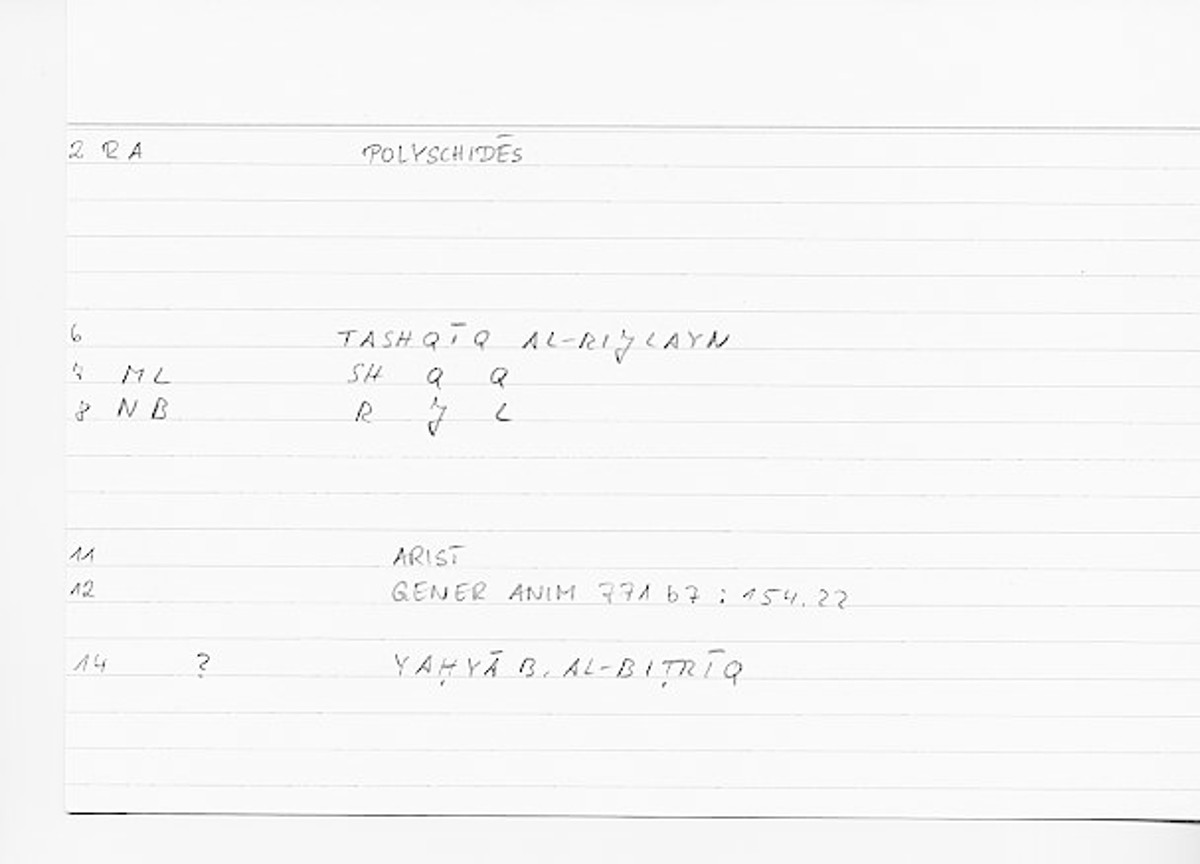 2 RA POLYSCHIDĒS
6 TASHQĪQ AL-RIJLAYN
7 ML SH Q Q
8 NB R J L
11 ARIST
12 GENER ANIM 771 b7 : 154.22
14 ? YAḤYĀ B. AL-BIṬRĪQ